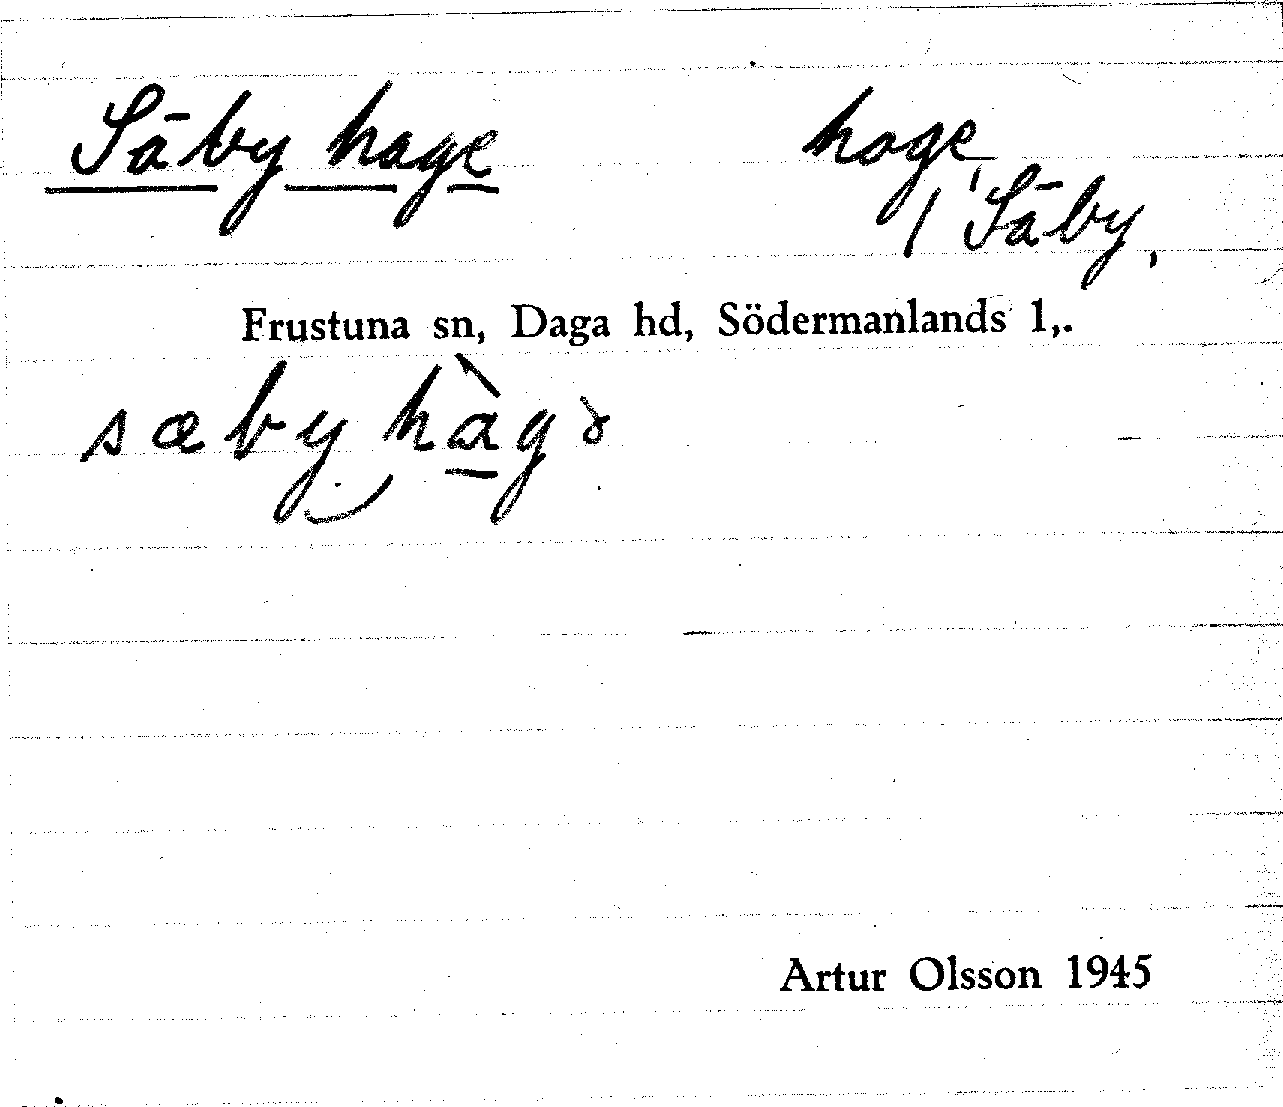 Säby hage hage,
/ Säby,
Frustuna sn, Daga hd, Södermanlands l,.
sæby hàgɘ
Artur Olsson 1945